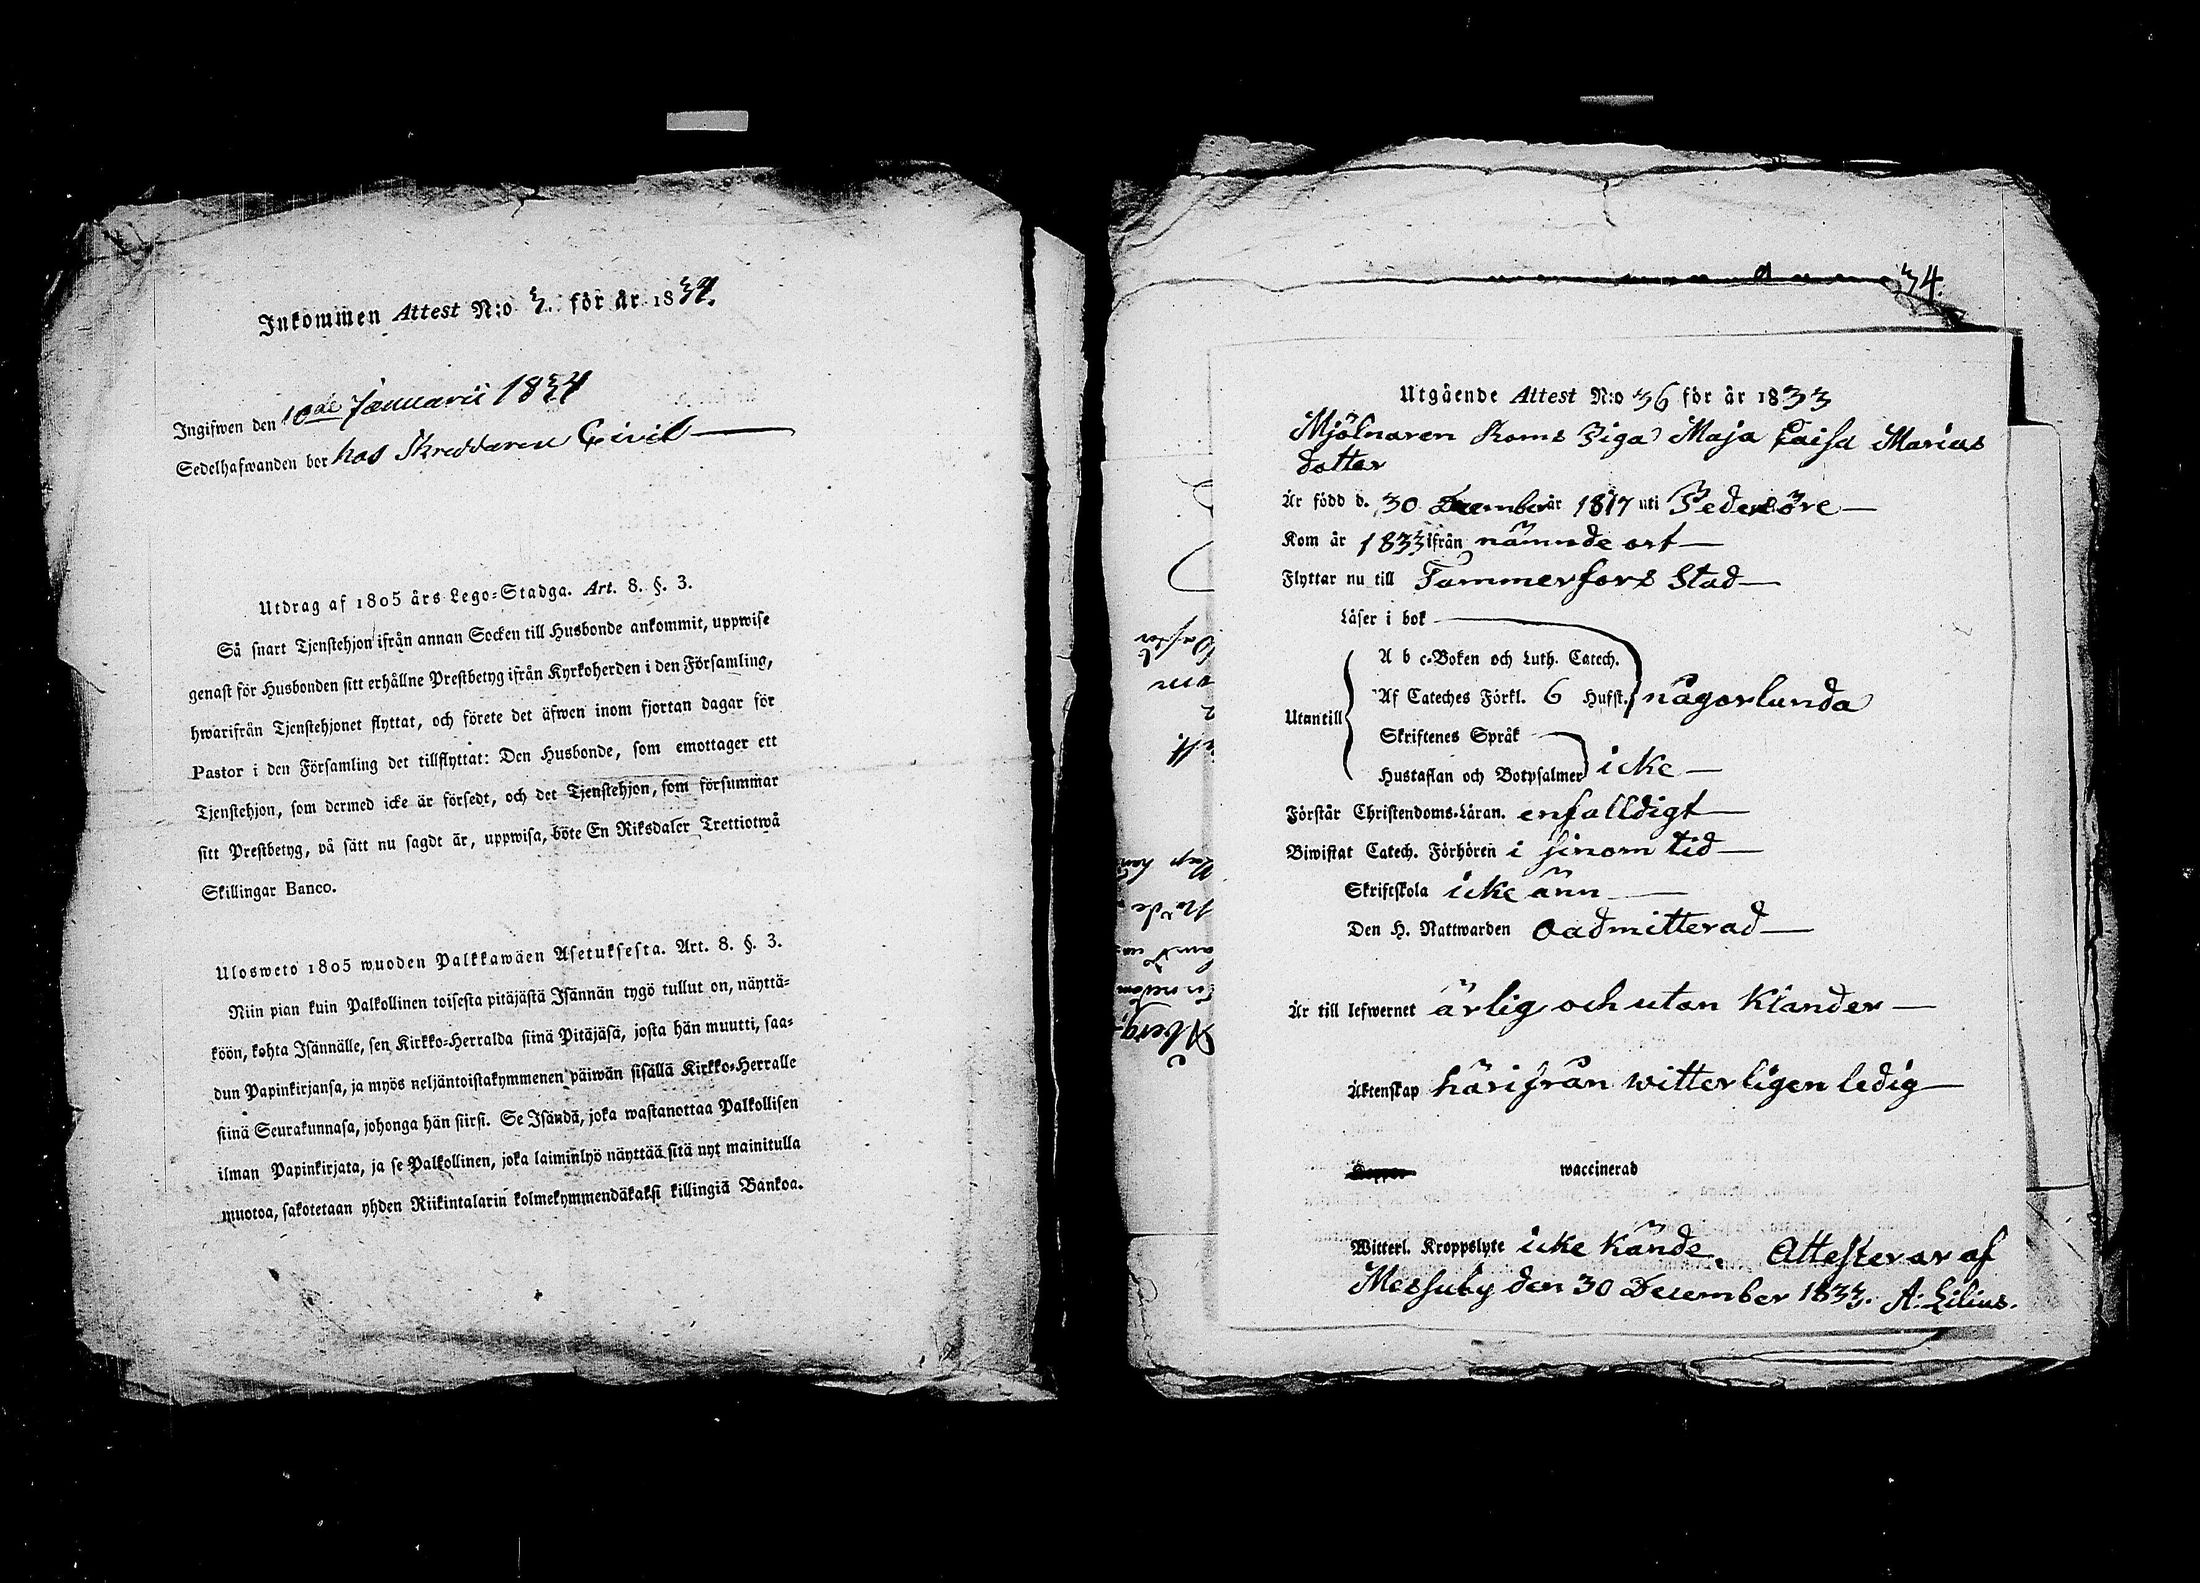 Inkommen Attest N:o 3. för år 1834.
Ingifwen den 10de Januarii 1834
Sedelhafwanden bor hos Skreddaren Civil
Utdrag af 1805 års Lego-Stadga. Art. 8. §. 3.
Så snart Tjenstehjon ifrån annan Socken till Husbonde ankommit, uppwise
genast för Husbonden sitt erhållne Prestbetyg ifrån Kyrkoherden i den Församling,
hwarifrån Tjenstehjonet flyttat, och förete det äfwen inom fjortan dagar för
Pastor i den Församling det tillflyttat: Den Husbonde, som emottager ett
Tjenstehjon, som dermed icke är försedt, och det Tjenstehjon, som försummar
sitt Prestbetyg, på sätt nu sagdt är, uppwisa, böte En Riksdaler Trettiotwå
Skillingar Banco.
Ulosweto 1805 wuoden Palkkawäen Asetuksesta. Art. 8. §. 3.
Niin pian kuin Palkollinen toisesta pitäjästä Isännän tygö tullut on, näyttä-
köön, kohta Isännälle, sen Kirkko-Herralda siinä Pitäjäsä, josta hän muutti, saa-
dun Papinkirjansa, ja myös neljäntoistakymmenen päiwän sisällä Kirkko-Herralle
siinä Seurakunnasa, johonga hän siirsi. Se Isändä, joka wastanottaa Palkollisen
ilman Papinkirjata, ja se Palkollinen, joka laiminlyö näyttää sitä nyt mainitulla
muotoa, sakotetaan yhden Riikintalarin kolmekymmendäkaksi killingiä Bankoa.
34.
Utgående Attest N:o 36 för år 1833
Mjölnaren Roms Piga Maja Caisa Marias
dotter
Är född d. 30 December år 1817 uti Pedersöre
Kom år 1833 ifrån nämnde ort
Flyttar nu till Tammerfors Stad
Läser i bok
A b c-Boken och Luth. Catech.
Utantill Af Cateches Förkl. 6 Hufst. någorlunda
Skriftenes Språk
Hustaflan och Botpsalmer icke
Förstår Christendoms-Läran. enfalldigt
Biwistat Catech. Förhören i sinom tid
Skriftskola icke änn
Den H. Nattwarden oadmitterad
Är till lefwernet ärlig och utan Klander
Äktenskap härifrån witterligen ledig
waccinerad
Witterl. Kroppslyte icke Kände. Attesterar af
Messuby den 30 December 1833. A: Lilius.